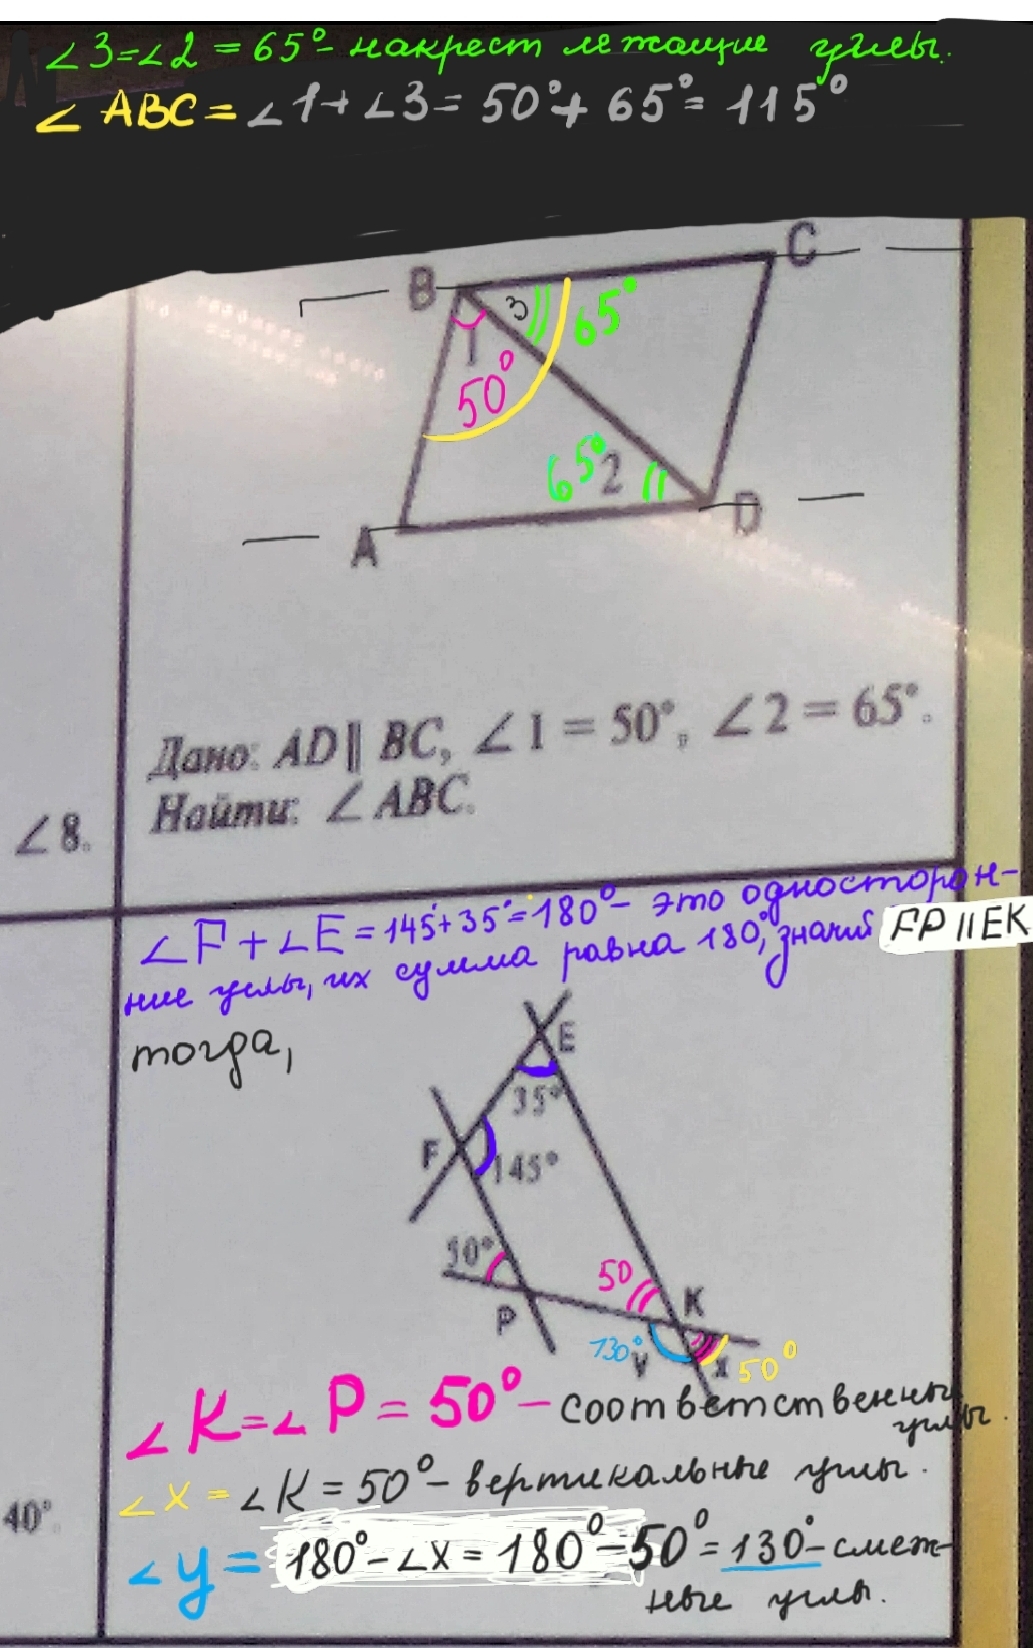 ∠3=∠2 = 65° - накрест лежащие углы.
∠ ABC = ∠1 + ∠3 = 50° + 65° = 115°
B
C
3
65°
1
50°
65°
2
A
D
Дано: AD ∥ BC, ∠1 = 50°, ∠2 = 65°.
Найти: ∠ABC.
∠8.
∠F + ∠E = 145° + 35° = 180° - это односторон-
ние углы, их сумма равна 180°, значит FP ∥ EK
тогда,
E
35°
F
145°
50°
50
P
K
130°
y
x
50°
∠K = ∠P = 50° - соответственные
углы.
∠x = ∠K = 50° - вертикальные углы.
40°.
∠y = 180° - ∠x = 180° - 50° = 130° - смеж-
ные углы.